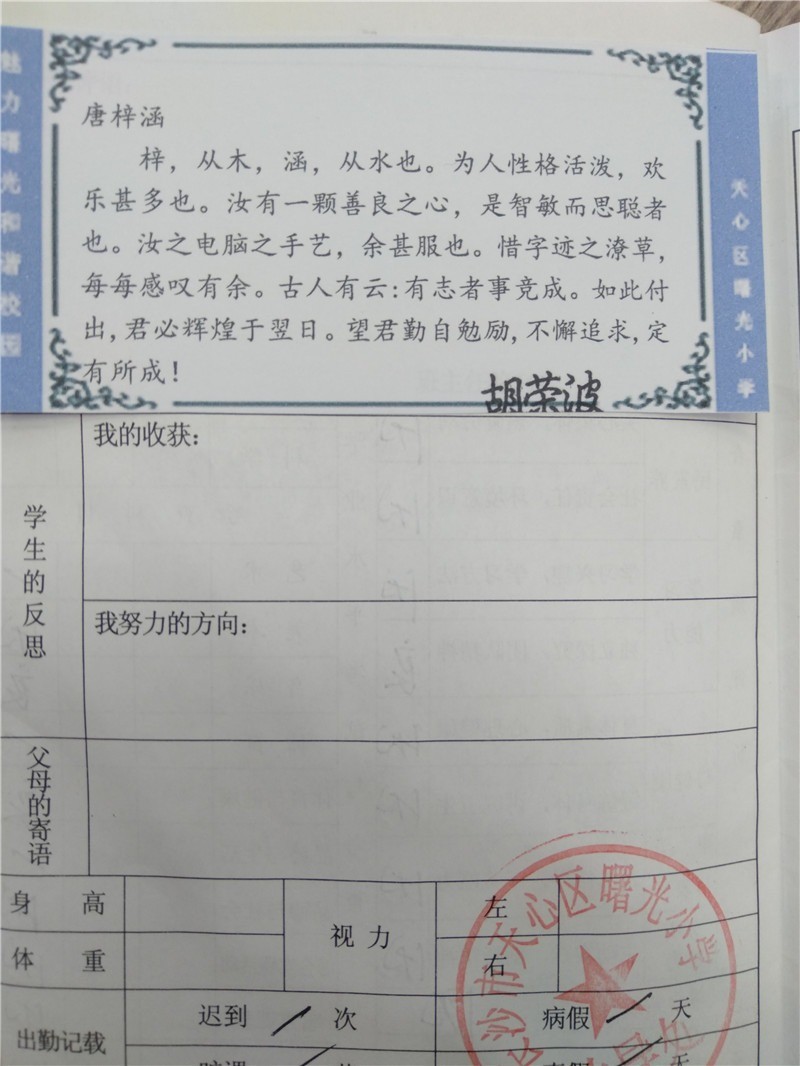 魅力曙光和谐校园
唐梓涵
梓，从木，涵，从水也。为人性格活泼，欢
乐甚多也。汝有一颗善良之心，是智敏而思聪者
也。汝之电脑之手艺，余甚服也。惜字迹之潦草，
每每感叹有余。古人有云：有志者事竞成。如此付
出，君必辉煌于翌日。望君勤自勉励，不懈追求，定
有所成！
胡荣波
天心区曙光小学
学生的反思
我的收获：
我努力的方向：
父母的寄语
身高
体重
视力
左
右
出勤记载
迟到 / 次
病假 / 天
沙市天心区曙光小学